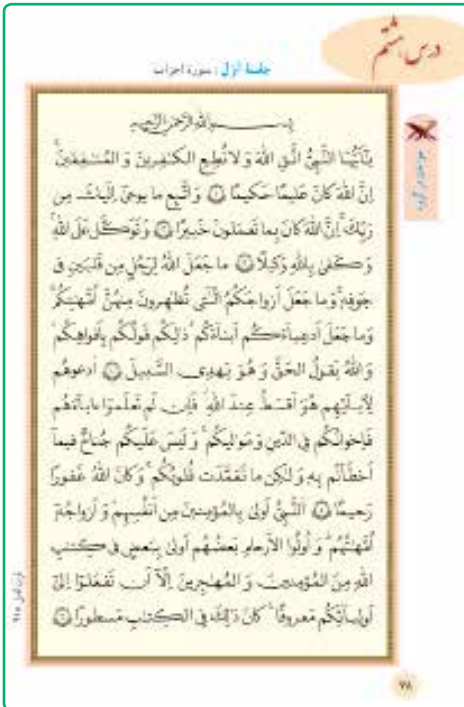 درس هشتم
جلسهٔ اوّل : سورهٔ احزاب
بِسْمِ اللهِ الرَّحْمٰنِ الرَّحيمِ
يٰٓاَيُّهَا النَّبِيُّ اتَّقِ اللهَ وَ لا تُطِعِ الكٰفِرينَ وَ المُنٰفِقينَ
اِنَّ اللهَ كانَ عَليمًا حَكيمًا ١ وَ اتَّبِع ما يوحىٰ اِلَيكَ مِن
رَبِّكَ اِنَّ اللهَ كانَ بِما تَعمَلونَ خَبيرًا ٢ وَ تَوَكَّل عَلَى اللهِ
وَ كَفىٰ بِاللهِ وَكيلًا ٣ ما جَعَلَ اللهُ لِرَجُلٍ مِن قَلبَينِ فى
جَوفِهٖ وَ ما جَعَلَ اَزواجَكُمُ الّٰٓـى تُظٰهِرونَ مِنهُنَّ اُمَّهٰتِكُم
وَ ما جَعَلَ اَدعِيآءَكُم اَبنآءَكُم ذٰلِكُم قَولُكُم بِاَفواهِكُم
وَ اللهُ يَقولُ الحَقَّ وَ هُوَ يَهدِى السَّبيلَ ٤ اُدعوهُم
لِأٰبآئِهِم هُوَ اَقسَطُ عِندَ اللهِ فَاِن لَم تَعلَموا ءابآءَهُم
فَاِخوانُكُم فِى الدّينِ وَ مَواليكُم وَ لَيسَ عَلَيكُم جُناحٌ فيمآ
اَخطَأتُم بِهٖ وَ لٰكِن ما تَعَمَّدَت قُلوبُكُم وَ كانَ اللهُ غَفورًا
رَحيمًا ٥ اَلنَّبِيُّ اَولىٰ بِالمُؤمِنينَ مِن اَنفُسِهِم وَ اَزواجُهٗٓ
اُمَّهٰتُهُم وَ اُولُوا الاَرحامِ بَعضُهُم اَولىٰ بِبَعضٍ فى كِتٰبِ
اللهِ مِنَ المُؤمِنينَ وَ المُهٰجِرينَ اِلّآ اَن تَفعَلوٓا اِلىٰٓ
اَولِيآئِكُم مَعروفًا كانَ ذٰلِكَ فِى الكِتٰبِ مَسطورًا ٦
٧٨